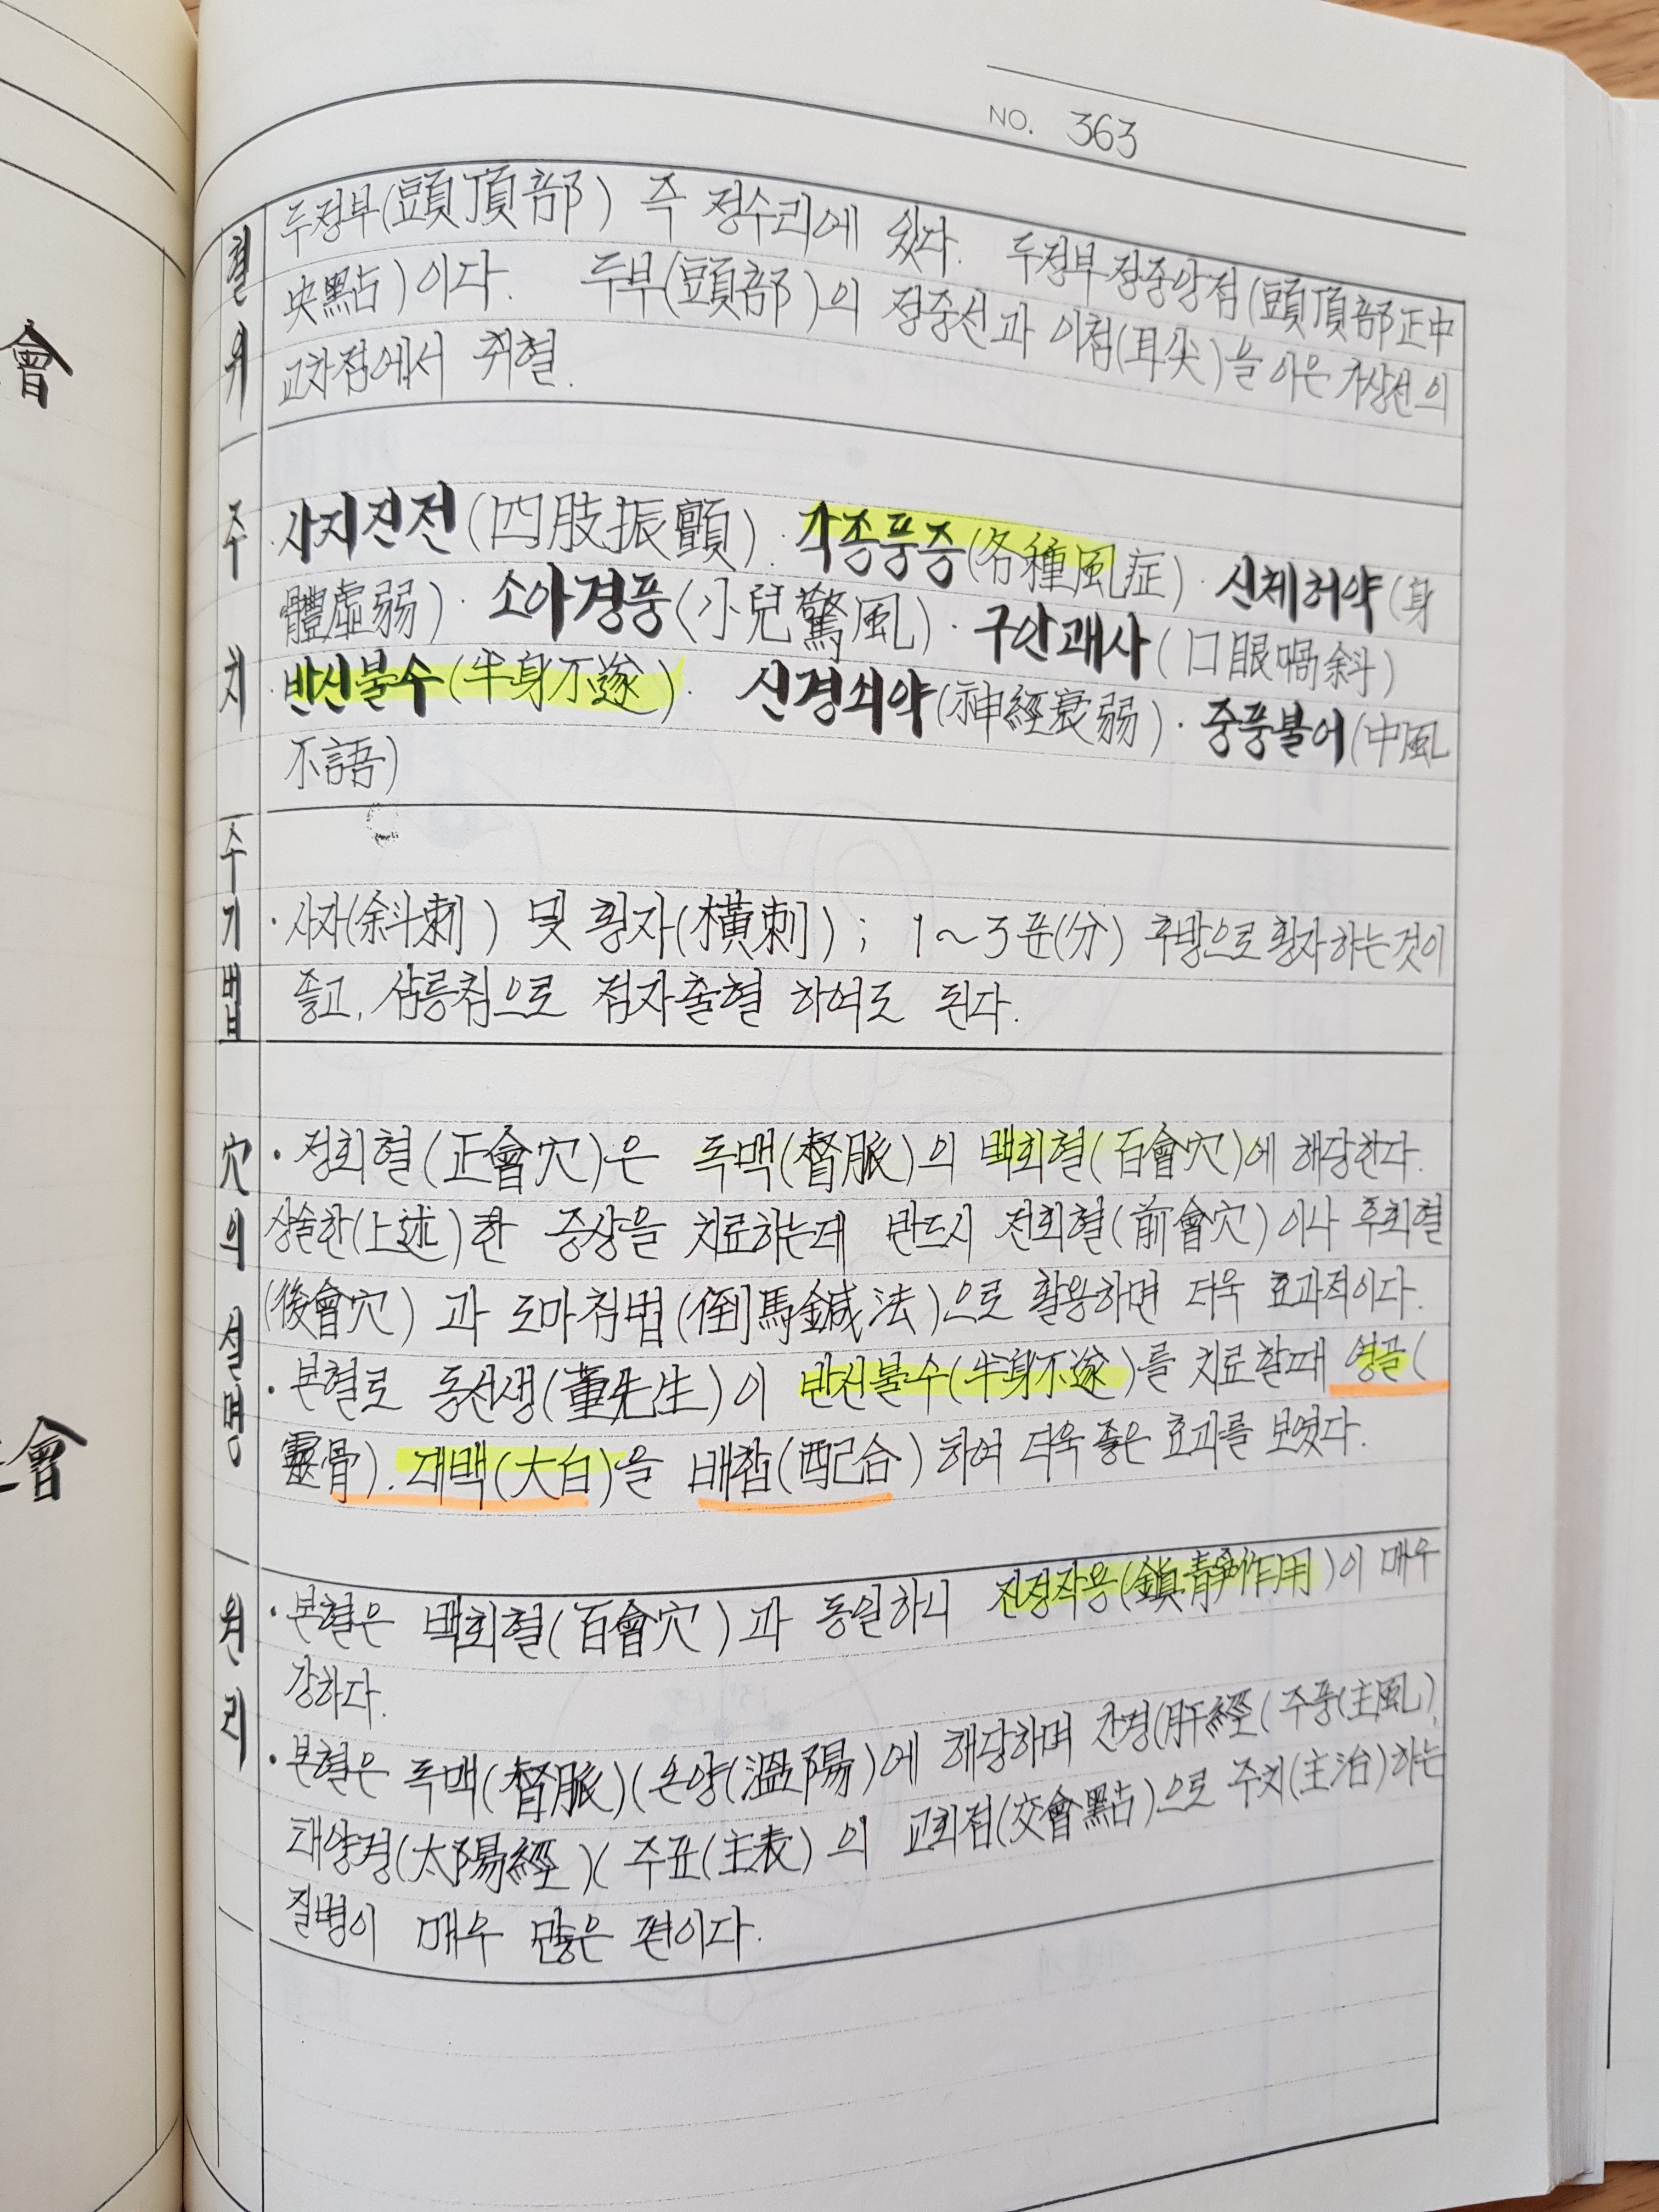 會
會
NO. 363
혈위
두정부(頭頂部) 즉 정수리에 있다. 두정부정중앙점(頭頂部正中
央點)이다. 두부(頭部)의 정중선과 이첨(耳尖)을 이은 가상선의
교차점에서 취혈.
주치
·사지진전(四肢振顫)·각종풍증(各種風症)·신체허약(身
體虛弱)·소아경풍(小兒驚風)·구안괘사(口眼喎斜)
·반신불수(半身不遂)· 신경쇠약(神經衰弱)·중풍불어(中風
不語)
수기법
·사자(斜刺) 및 횡자(橫刺) ; 1~3푼(分) 후방으로 횡자하는것이
좋고, 삼릉침으로 점자출혈 하여도 된다.
穴의 설명
·정회혈(正會穴)은 독맥(督脈)의 백회혈(百會穴)에 해당한다.
상술한(上述)한 증상을 치료하는데 반드시 전회혈(前會穴)이나 후회혈
(後會穴)과 도마침법(倒馬鍼法)으로 활용하면 더욱 효과적이다.
·본혈로 동선생(董先生)이 반신불수(半身不遂)를 치료할때 영골(
靈骨). 대백(大白)을 배합(配合)하여 더욱 좋은 효과를 보였다.
원리
·본혈은 백회혈(百會穴)과 동일하니 진정작용(鎭靜作用)이 매우
강하다.
·본혈은 독맥(督脈)(온양(溫陽)에 해당하며 간경(肝經(주풍(主風),
태양경(太陽經)(주표(主表)의 교회점(交會點)으로 주치(主治)하는
질병이 매우 많은 편이다.